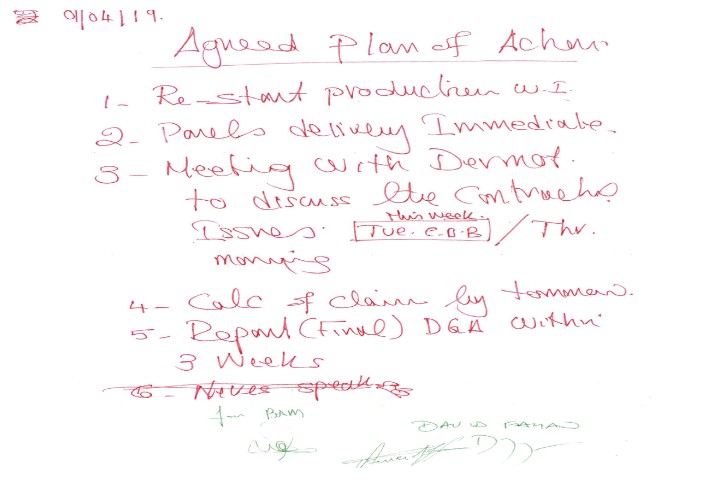 01/04/19.
Agreed Plan of Action
1- Re-start production w.I.
2- Panels delivery Immediate.
3- Meeting with Dermot.
to discuss the Contracts
Issues. This week.
Tue. C.O.B / Thr.
morning
4- Calc of claim by tommorow.
5- Report (Final) DGA within
3 Weeks
6- Never speak
for BAM
DAVID